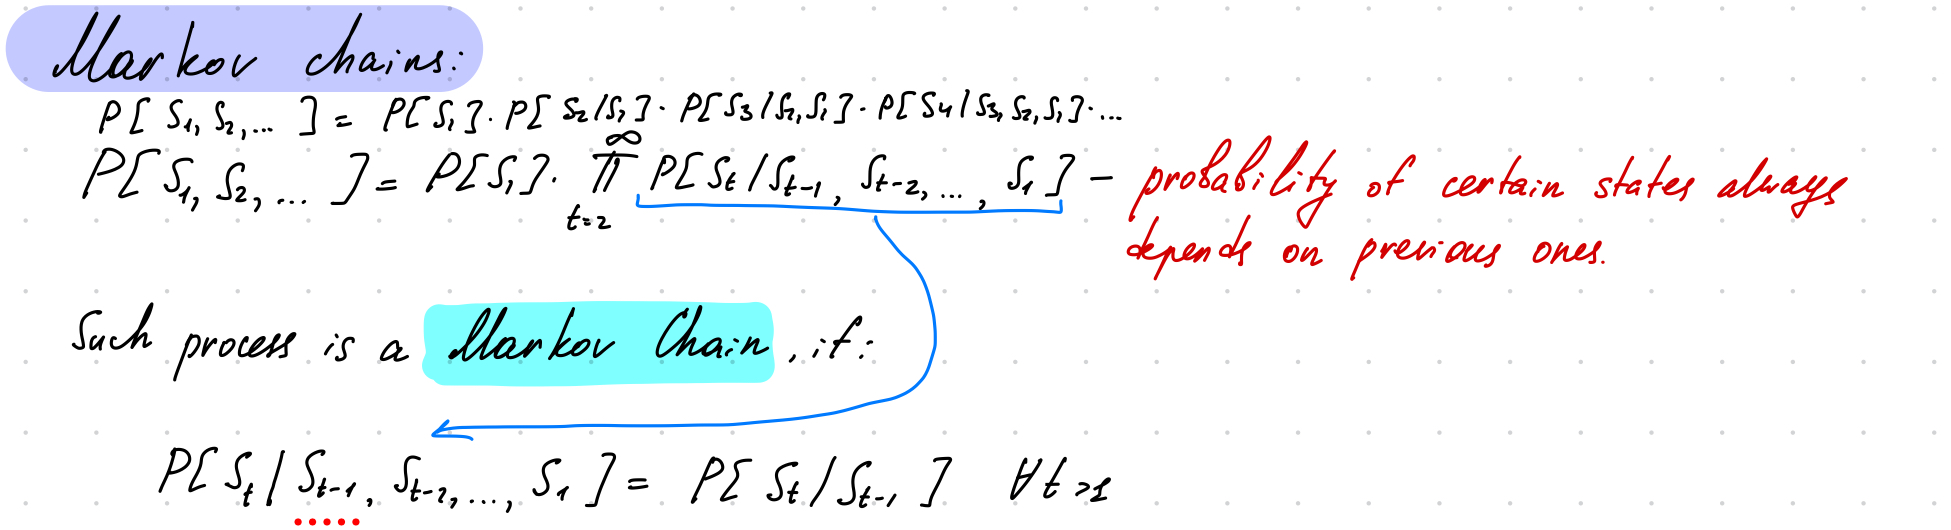 Markov chains:
P[S₁, S₂, ...] = P[S₁] · P[S₂/S₁] · P[S₃/S₂,S₁] · P[S₄/S₃,S₂,S₁] · ...
P[S₁, S₂, ...] = P[S₁] · ∏_{t=2}^{∞} P[S_t/S_{t-1}, S_{t-2}, ..., S₁] – probability of certain states always
depends on previous ones.
Such process is a Markov Chain, if:
P[S_t/S_{t-1}, S_{t-2}, ..., S₁] = P[S_t/S_{t-1}] ∀t>1